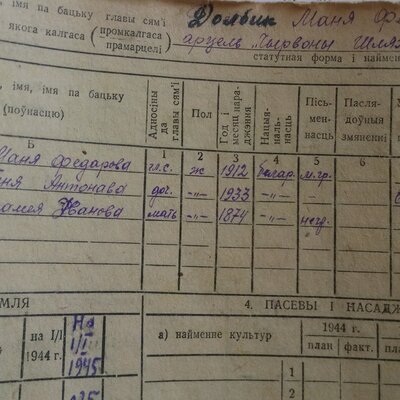 імя, імя па бацьку главы сям'і Долбик Маня Фе
якога калгаса (промкалгоса прамарцелі) арцель „Чырвоны Шлях
статутная форма і наймен
імя, імя па бацьку (поўнасцю) Адносіны да главы сям'і Пол Год і месяц нараджэння Нацыянальнасць Пісьменнасць Паслядоўныя змяненні
Б 1 2 3 4 5 6
Маня Федарова гл.с. ж 1912 белар. м.гр.
Антонава доч. -"- 1933 -"- -
Іванова мать -"- 1874 -"- негр.
ЗЯМЛЯ 4. ПАСЕВЫ І НАСАДЖ
на I/I 1944 г. На I/I 1945 а) найменне культур 1944 г.
план факт. пла
1
2